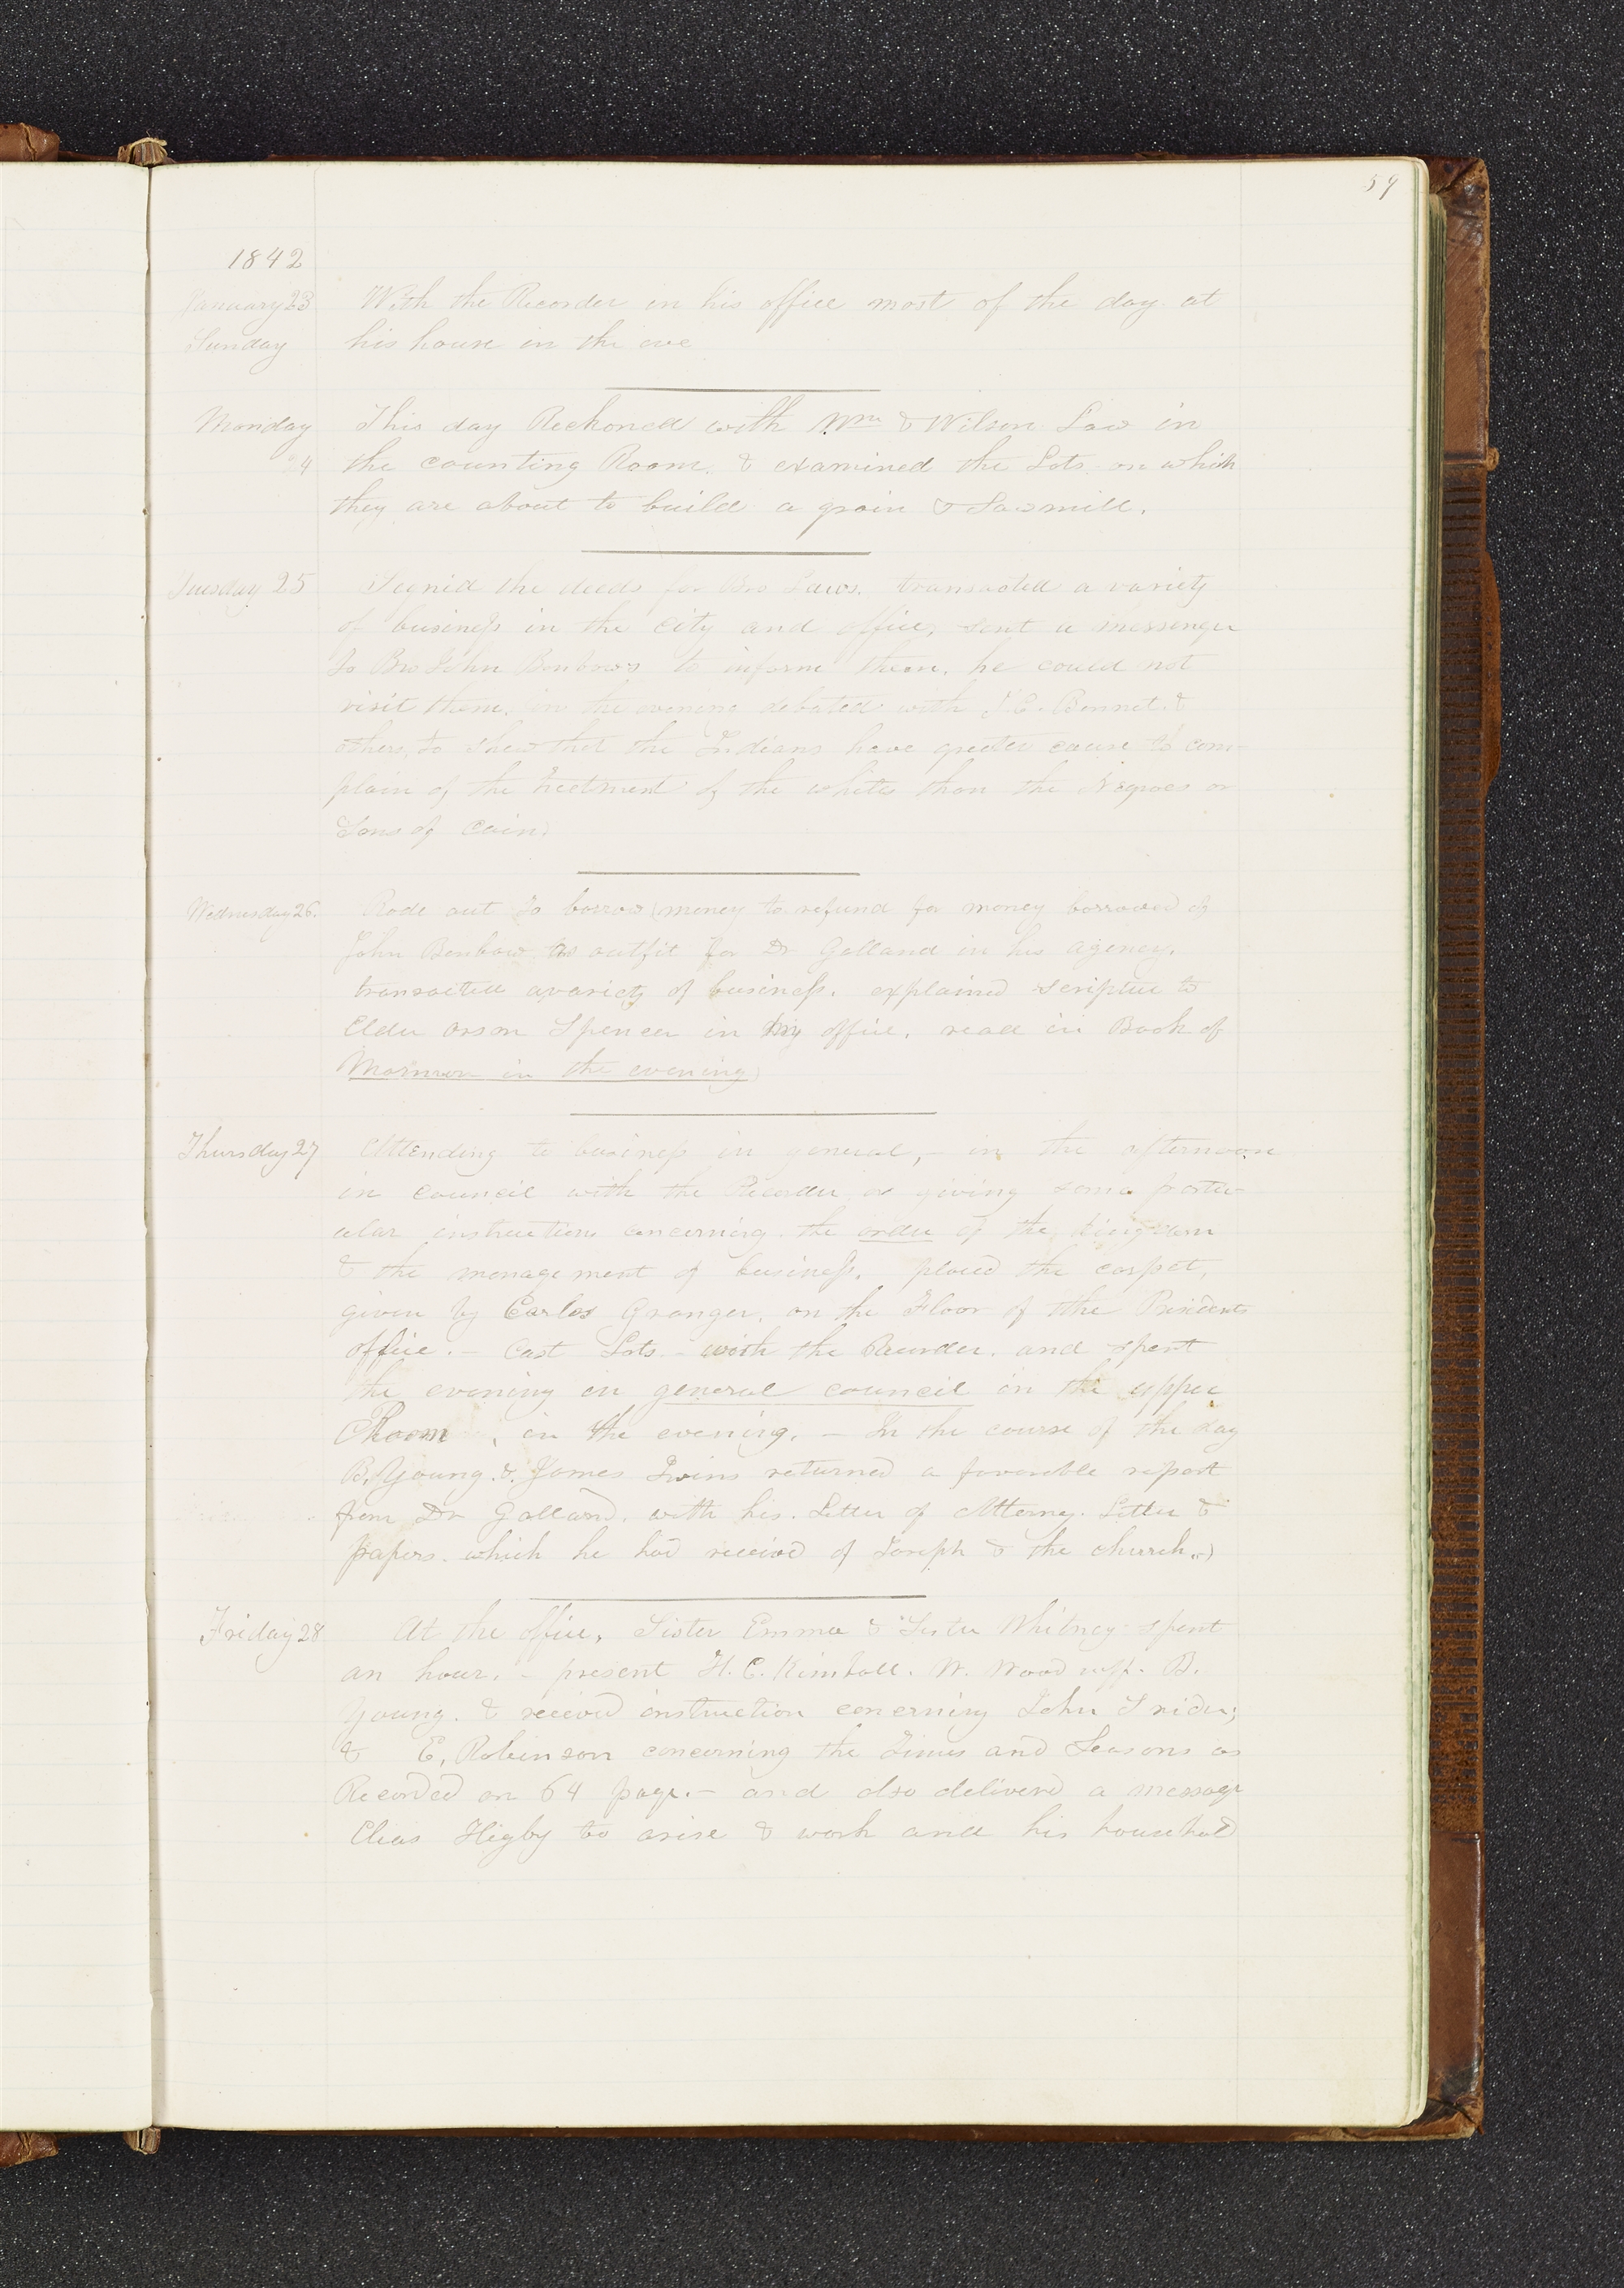 59
1842
January 23 With the Recorder in his office most of the day. at
Sunday his house in the eve
Monday This day Reckoned with Wm & Wilson Law in
24 the counting Room. & examined the Lots on which
they are about to build a grain & Sawmill.
Tuesday 25 Signed the deeds for Bro Laws. transacted a variety
of business in the city and office, sent a messenger
to Bro John Benbows to inform them. he could not
visit them. in the evening debated with J. C. Bennet. &
others, to shew that the Indians have greater cause to com-
plain of the treetment of the whites than the Negroes or
Sons of Cain)
Wednesday 26. Rode out to borrow (money to refund for money borrowed of
John Benbow as outfit for Dr Galland in his agency.
transacted a variety of business. explained scripture to
Elder Orson Spencer in my office. read in Book of
Mormon in the evening)
Thursday 27 Attending to business in general,- in the afternoon
in council with the Recorder or giving some partic-
ular instructions concerning the order of the kingdom
& the management of business. placed the carpet,
given by Carlos Granger, on the Floor of the Presidents
office. - Cast Lots - with the Recorder. and spent
the evening in general council in the upper
Room, in the evening. - In the course of the day
B. Young. & James Ivins returned a favorable report
from Dr Galland. with his. Letter of Attorney. Letter &
papers. which he had received of Joseph & the church..)
Friday 28 At the office, Sister Emma & Sister Whitney spent
an hour. - present H. C. Kimball. W. Woodruff. B.
Young. & received instruction concerning John Snider;
& E, Robinson concerning the Times and Seasons as
Recorded on 64 page. - and also deliverd a message
Elias Higby to arise & work and his household